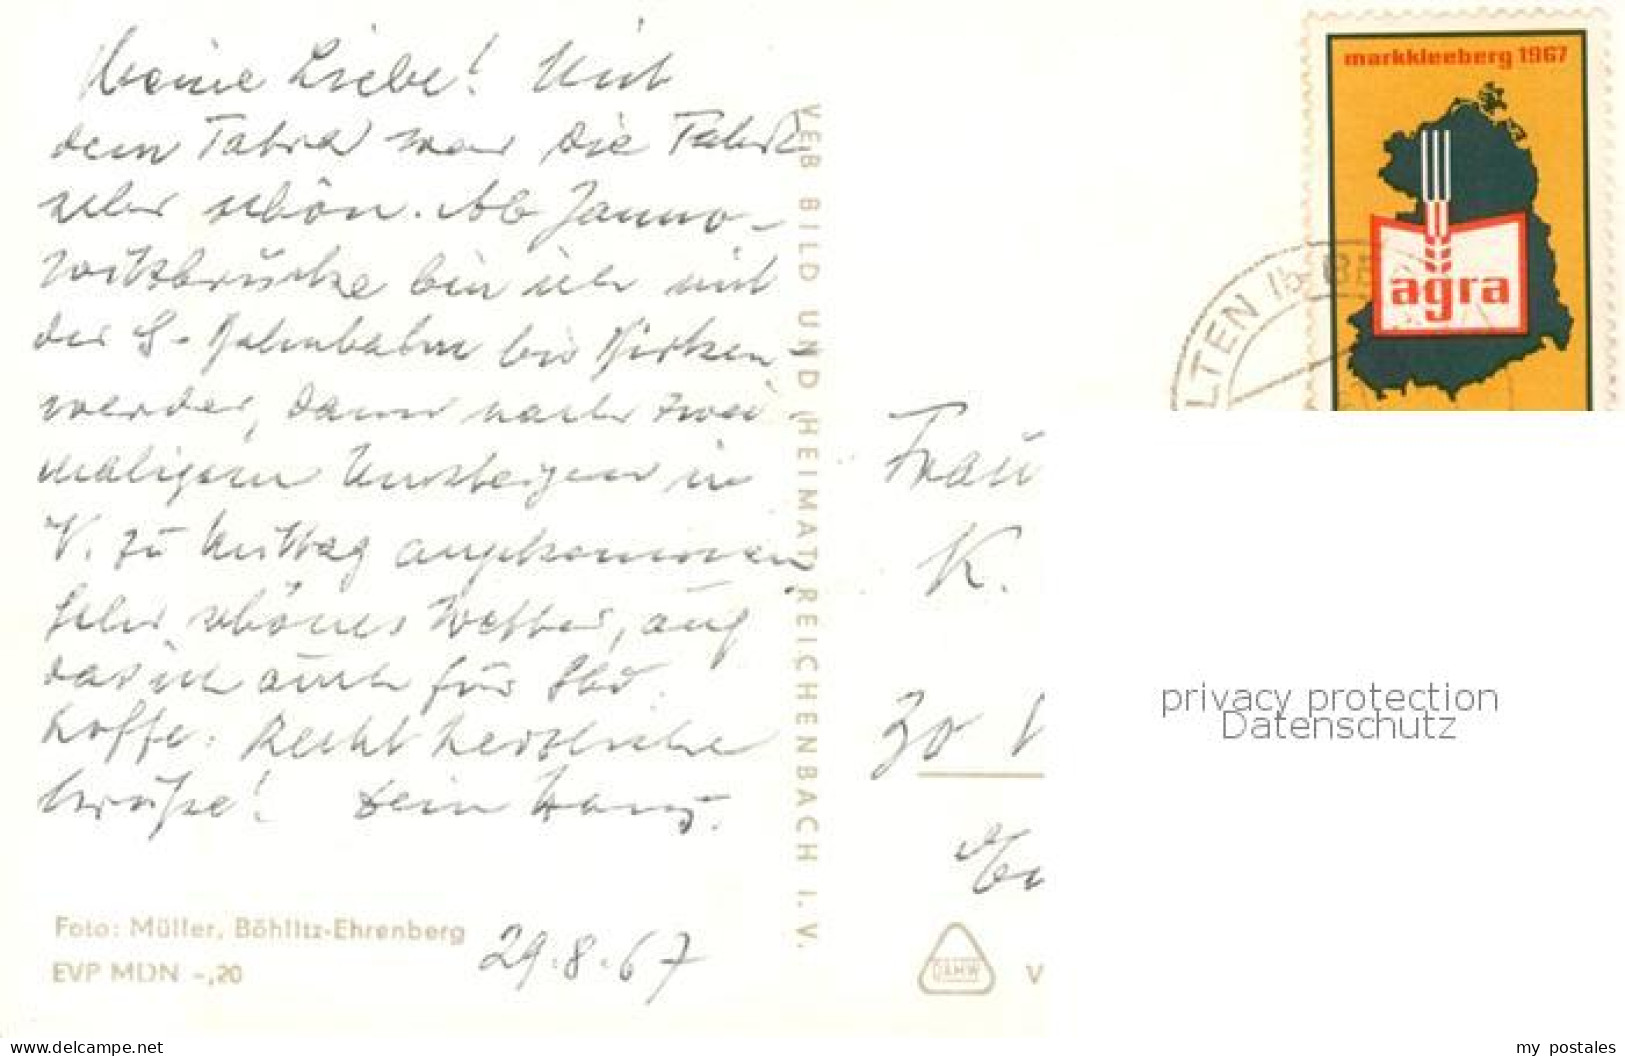 Meine Liebe! Mit
dem Tatra war die Fahrt
sehr schön. Ab Janno-
witzbrücke bin ich mit
der S-Bahn bis
werder, dann nach zwei
maligem Umsteigen in
V. zu Mittag angekommen
Sehr schönes Wetter, auf
das ich auch für
hoffe. Recht herzliche
Grüße! Dein Hans.
Foto: Müller, Böhlitz-Ehrenberg
EVP MDN -,20
29.8.67
VEB BILD UND HEIMAT REICHENBACH I. V.
markkleeberg 1967
agra
LTEN
Frau
K.
DAMW
V
privacy protection
Datenschutz
www.delcampe.net
my_postales